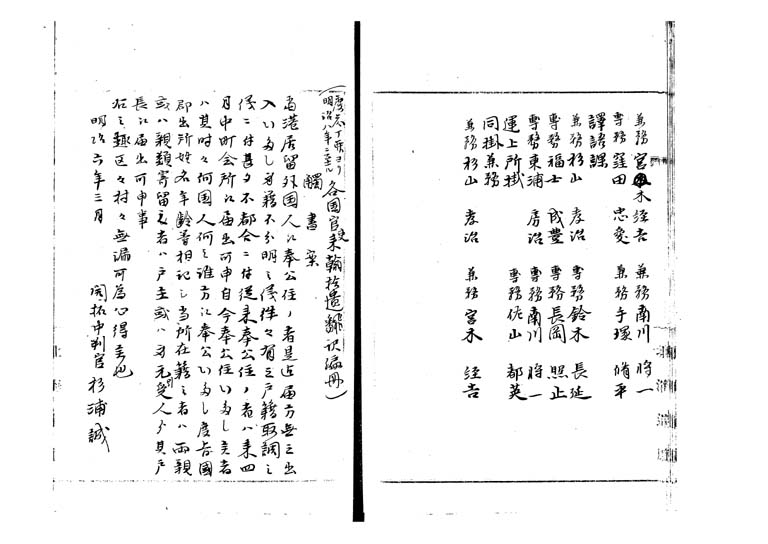 兼務 宮木経吉 兼務 南川 将一
専務 窪田 忠愛 兼務 手塚 脩平
譯語課
兼務 杉山 孝治 専務 鈴木 長延
専務 福士 成豊 専務 長岡 照止
専務 東浦 房治 専務 南川 将一
運上所掛 専務 佐山 都英
同掛兼務
兼務 杉山 孝治 兼務 宮木 経吉
明治八年ニ至ル 各国官吏来翰拾遺雑訳編冊)
觸書案
当港居留外国人江奉公住ノ者是迄届方無之出
入いたし身籍不分明之儀往々有之戸籍取調之
儀ニ付甚夕不都合ニ付従来奉公住ノ者ハ来四
月中町会所江届出可申自今奉公住いたし候者
ハ其時々何国人何之誰方江奉公いたし度旨国
郡出所姓名年齢書相記し当所在籍之者ハ両親
或ハ親類寄留之者ハ戸主或ハ身元引受人ゟ其戸
長江届出可申事
右之趣区々村々無漏可為心得者也
明治六年三月
開拓中判官杉浦誠